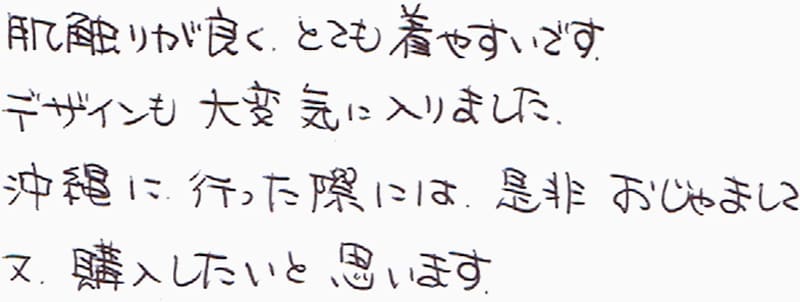 肌触りが良く、とても着やすいです。
デザインも大変気に入りました。
沖縄に行った際には、是非おじゃまして
又、購入したいと思います。